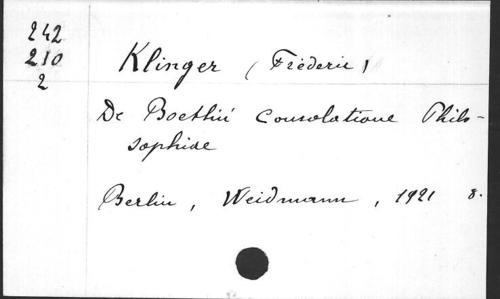 242
210
2
Klinger (Fréderic)
De Boethii Consolatione Philo-
sophiae
Berlin, Weidmann, 1921 8.